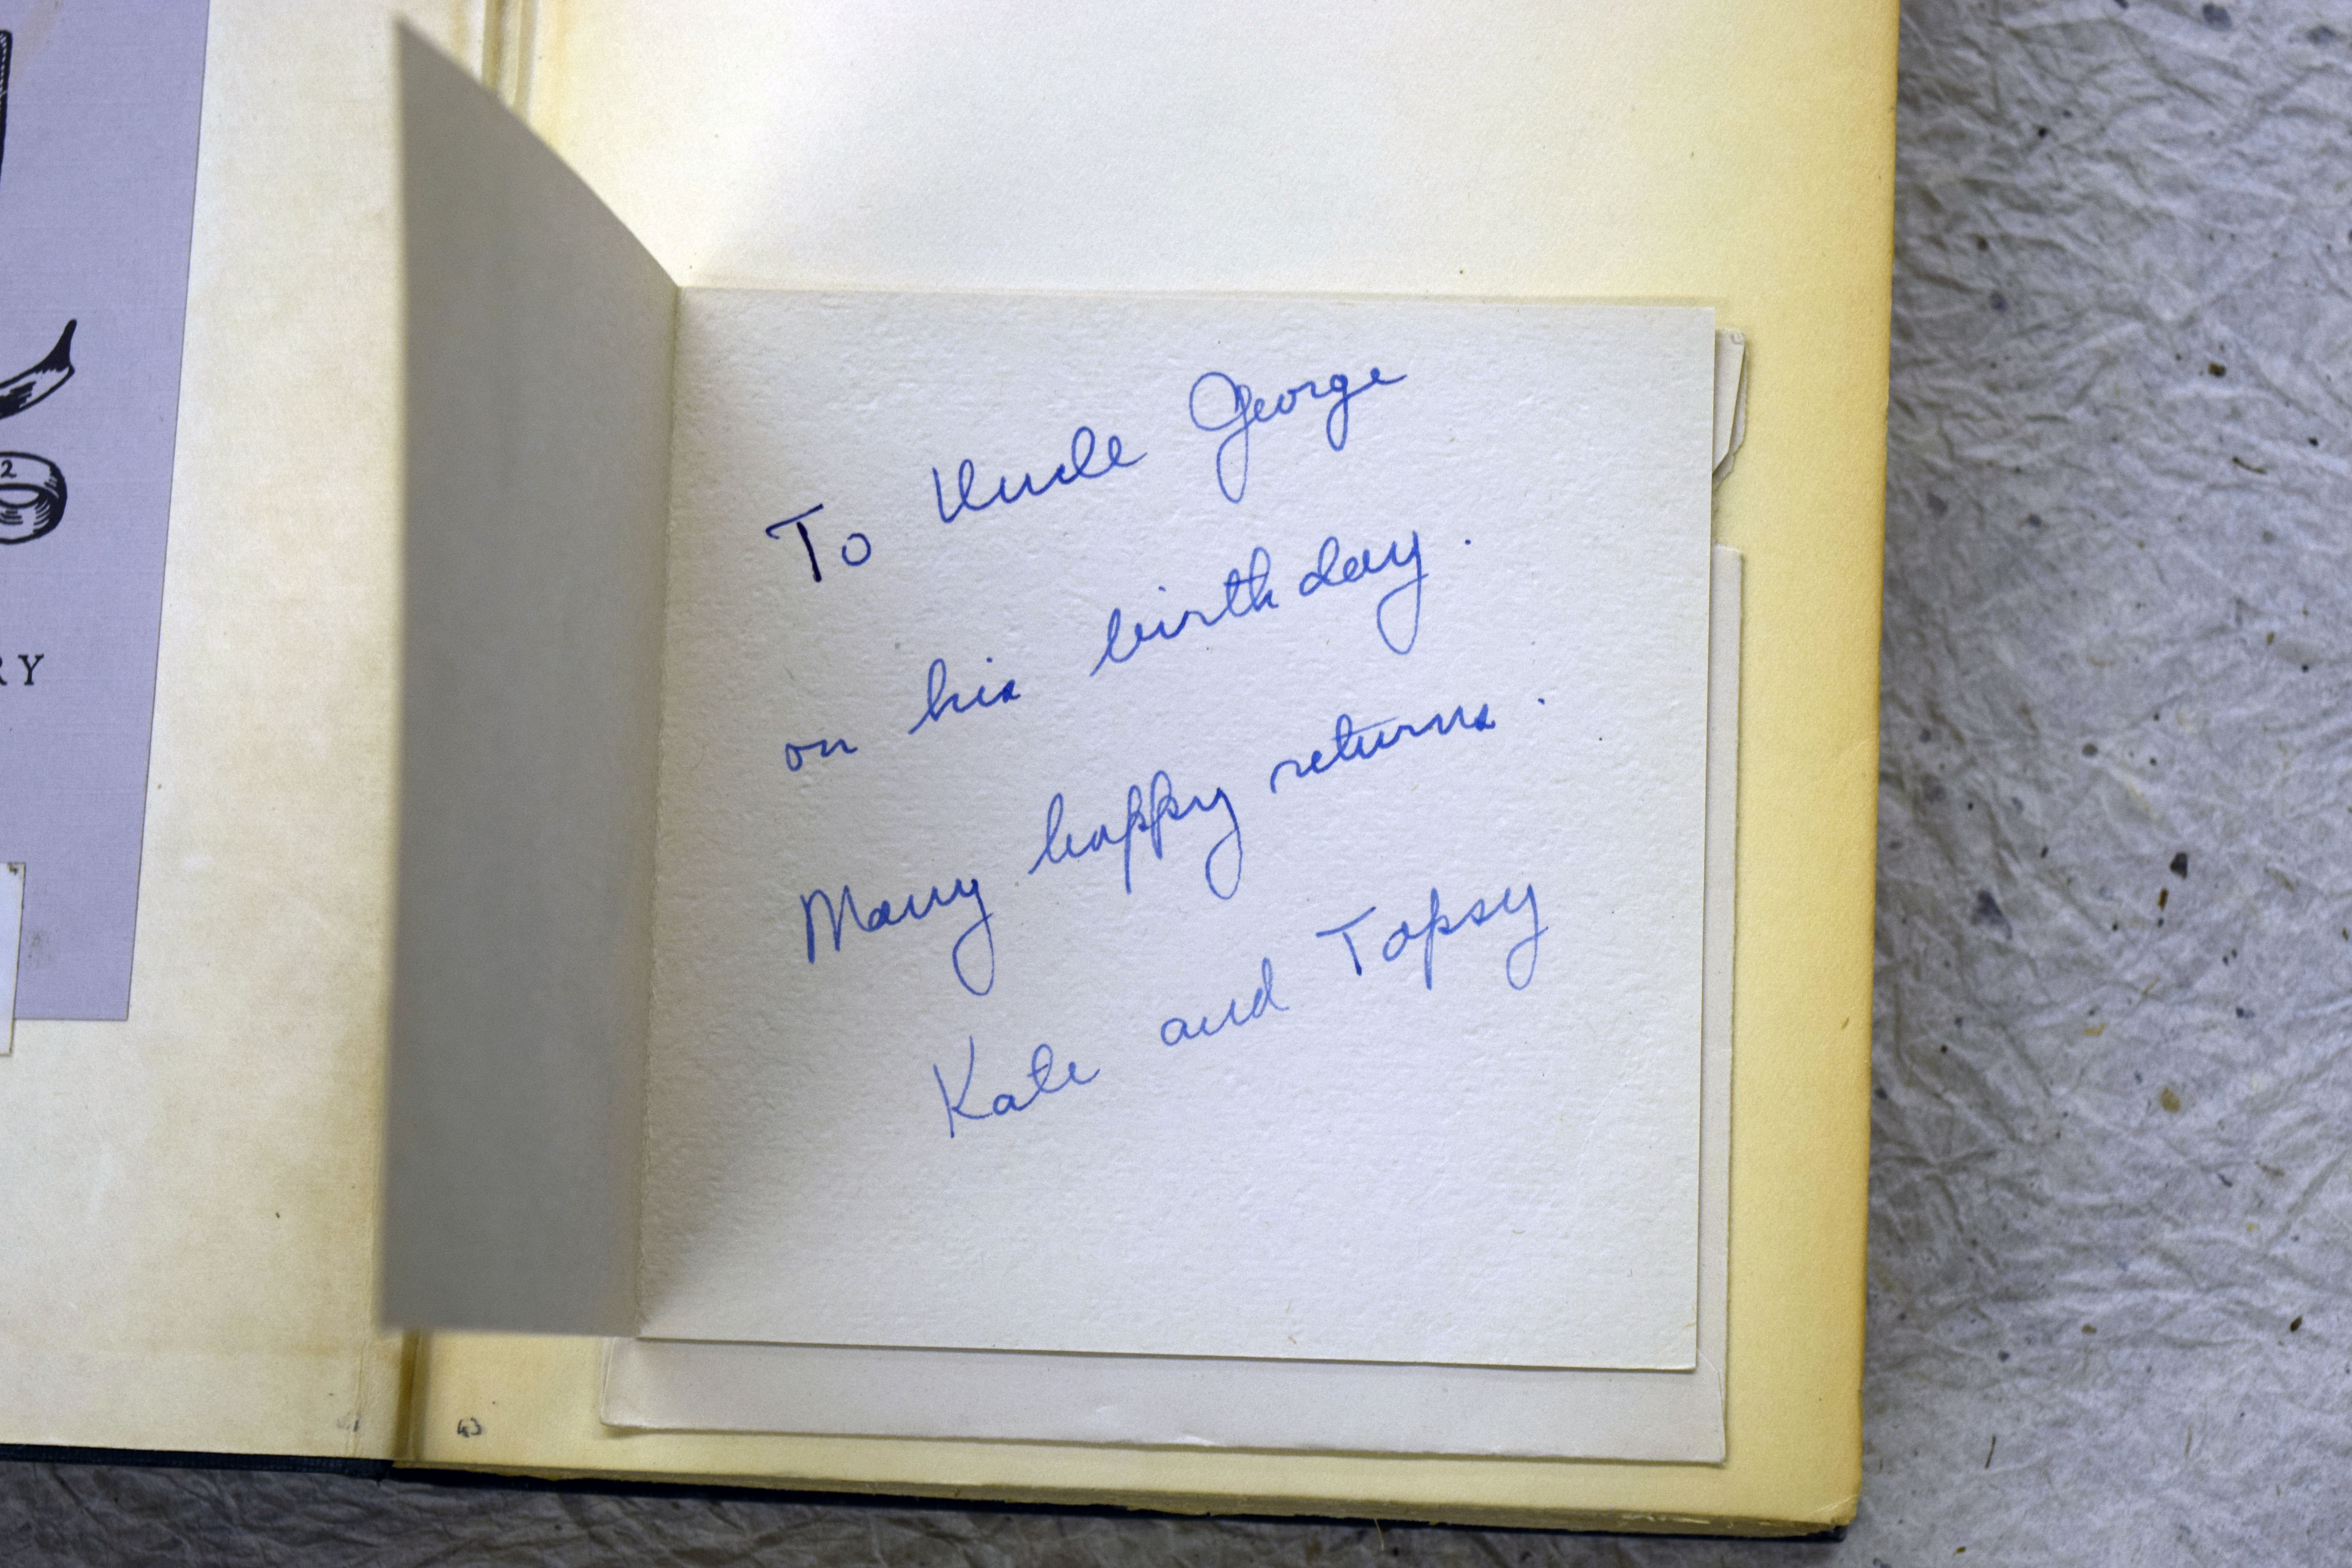 To Uncle George
on his birthday.
Many happy returns.
Kate and Topsy
2
RY
43